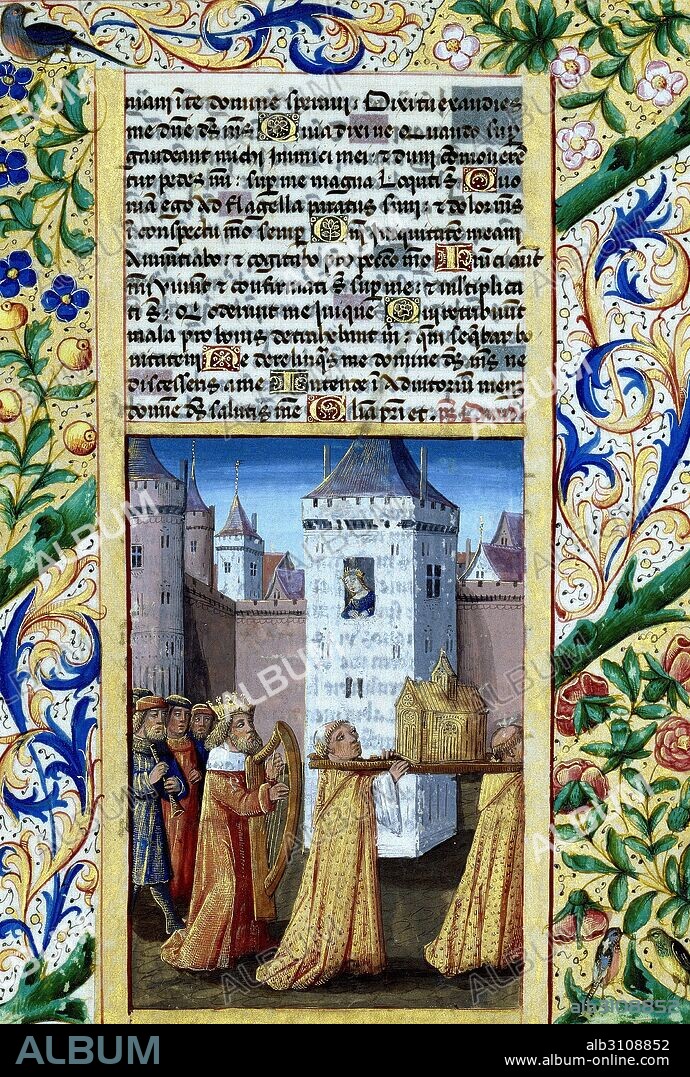 niam i te domine speraui: Dixi tu exaudies
me dne ds ms Quia dixi ne Quando sup
gaudeant michi Inimici mei: et dum comoueren
tur pedes mi: sup me magna Loquti s Quo
niam ego ad flagella paratus sum: et dolor ms
i conspectu mo semper Qm iniquitate meam
Annunciabo: et cogitabo pro peccō mo Inimici aut
mi viuut et confirmati s sup me: et multiplica
ti s: q oderunt me inique Qui retribuunt
mala pro bonis detrahebant m: qm seqbar bo
nitatem Ne derelinqs me domine ds ms ne
discesseris a me Intende i Adiutorium meum
domine ds salutis mee Glia pri et. ps. Dauid
ALBUM
ab3108852
www.album-online.com